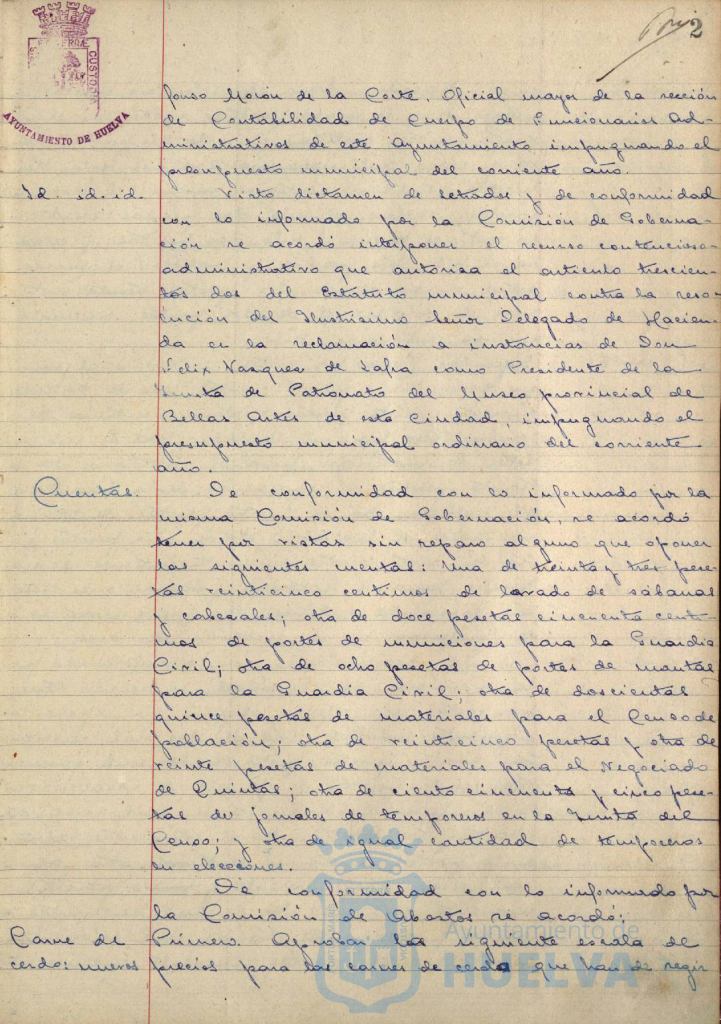 2
PORTUS MARIS ET TERRAE CUSTODIA
AYUNTAMIENTO DE HUELVA
fonso Morón de la Corte, Oficial mayor de la sección
de Contabilidad de Cuerpo de Funcionarios Ad-
ministrativos de este Ayuntamiento impugnando el
presupuesto municipal del corriente año.
Id. id. id. Visto dictamen de letrados y de conformidad
con lo informado por la Comisión de Goberna-
ción se acordó interponer el recurso contencioso-
administrativo que autoriza el artículo trescien-
tos dos del Estatuto municipal contra la reso-
lución del Ilustrísimo Señor Delegado de Hacien-
da en la reclamación a instancias de Don
Félix Vazquez de Zafra como Presidente de la
Junta de Patronato del Museo provincial de
Bellas Artes de esta Ciudad, impugnando el
presupuesto municipal ordinario del corriente
año.
Cuentas. De conformidad con lo informado por la
misma Comisión de Gobernación, se acordó
tener por vistas sin reparo alguno que oponer
las siguientes cuentas: Una de treinta y tres pese-
tas veinticinco centimos de lavado de sábanas
y cabezales; otra de doce pesetas cincuenta centi-
mos de portes de municiones para la Guardia
Civil; otra de ocho pesetas de portes de mantas
para la Guardia Civil; otra de doscientas
quince pesetas de materiales para el Censo de
población; otra de veinticinco pesetas y otra de
veinte pesetas de materiales para el Negociado
de Quintas; otra de ciento cincuenta y cinco pese-
tas de jornales de temporeros en la Junta del
Censo; y otra de igual cantidad de temporeros
en elecciones.
De conformidad con lo informado por
la Comisión de Abastos se acordó:
Carne de Primero. Aprobar la siguiente escala de
cerdo: nuevos precios para las carnes de cerdo que han de regir
Ayuntamiento de
HUELVA